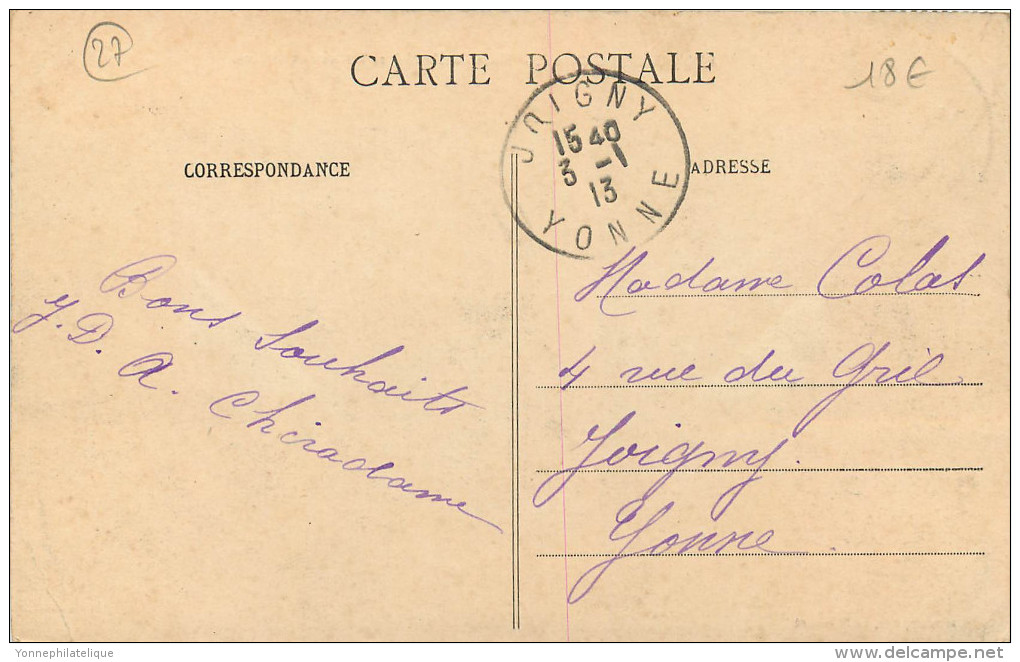 27
CARTE POSTALE
18€
JOIGNY
15 40
3 -1
13
YONNE
CORRESPONDANCE
ADRESSE
Bons Souhaits
Y. D. A. Chiradame
Madame Colas
4 rue du Gril
Joigny.
Yonne.
Yonnephilatelique
www.delcampe.net